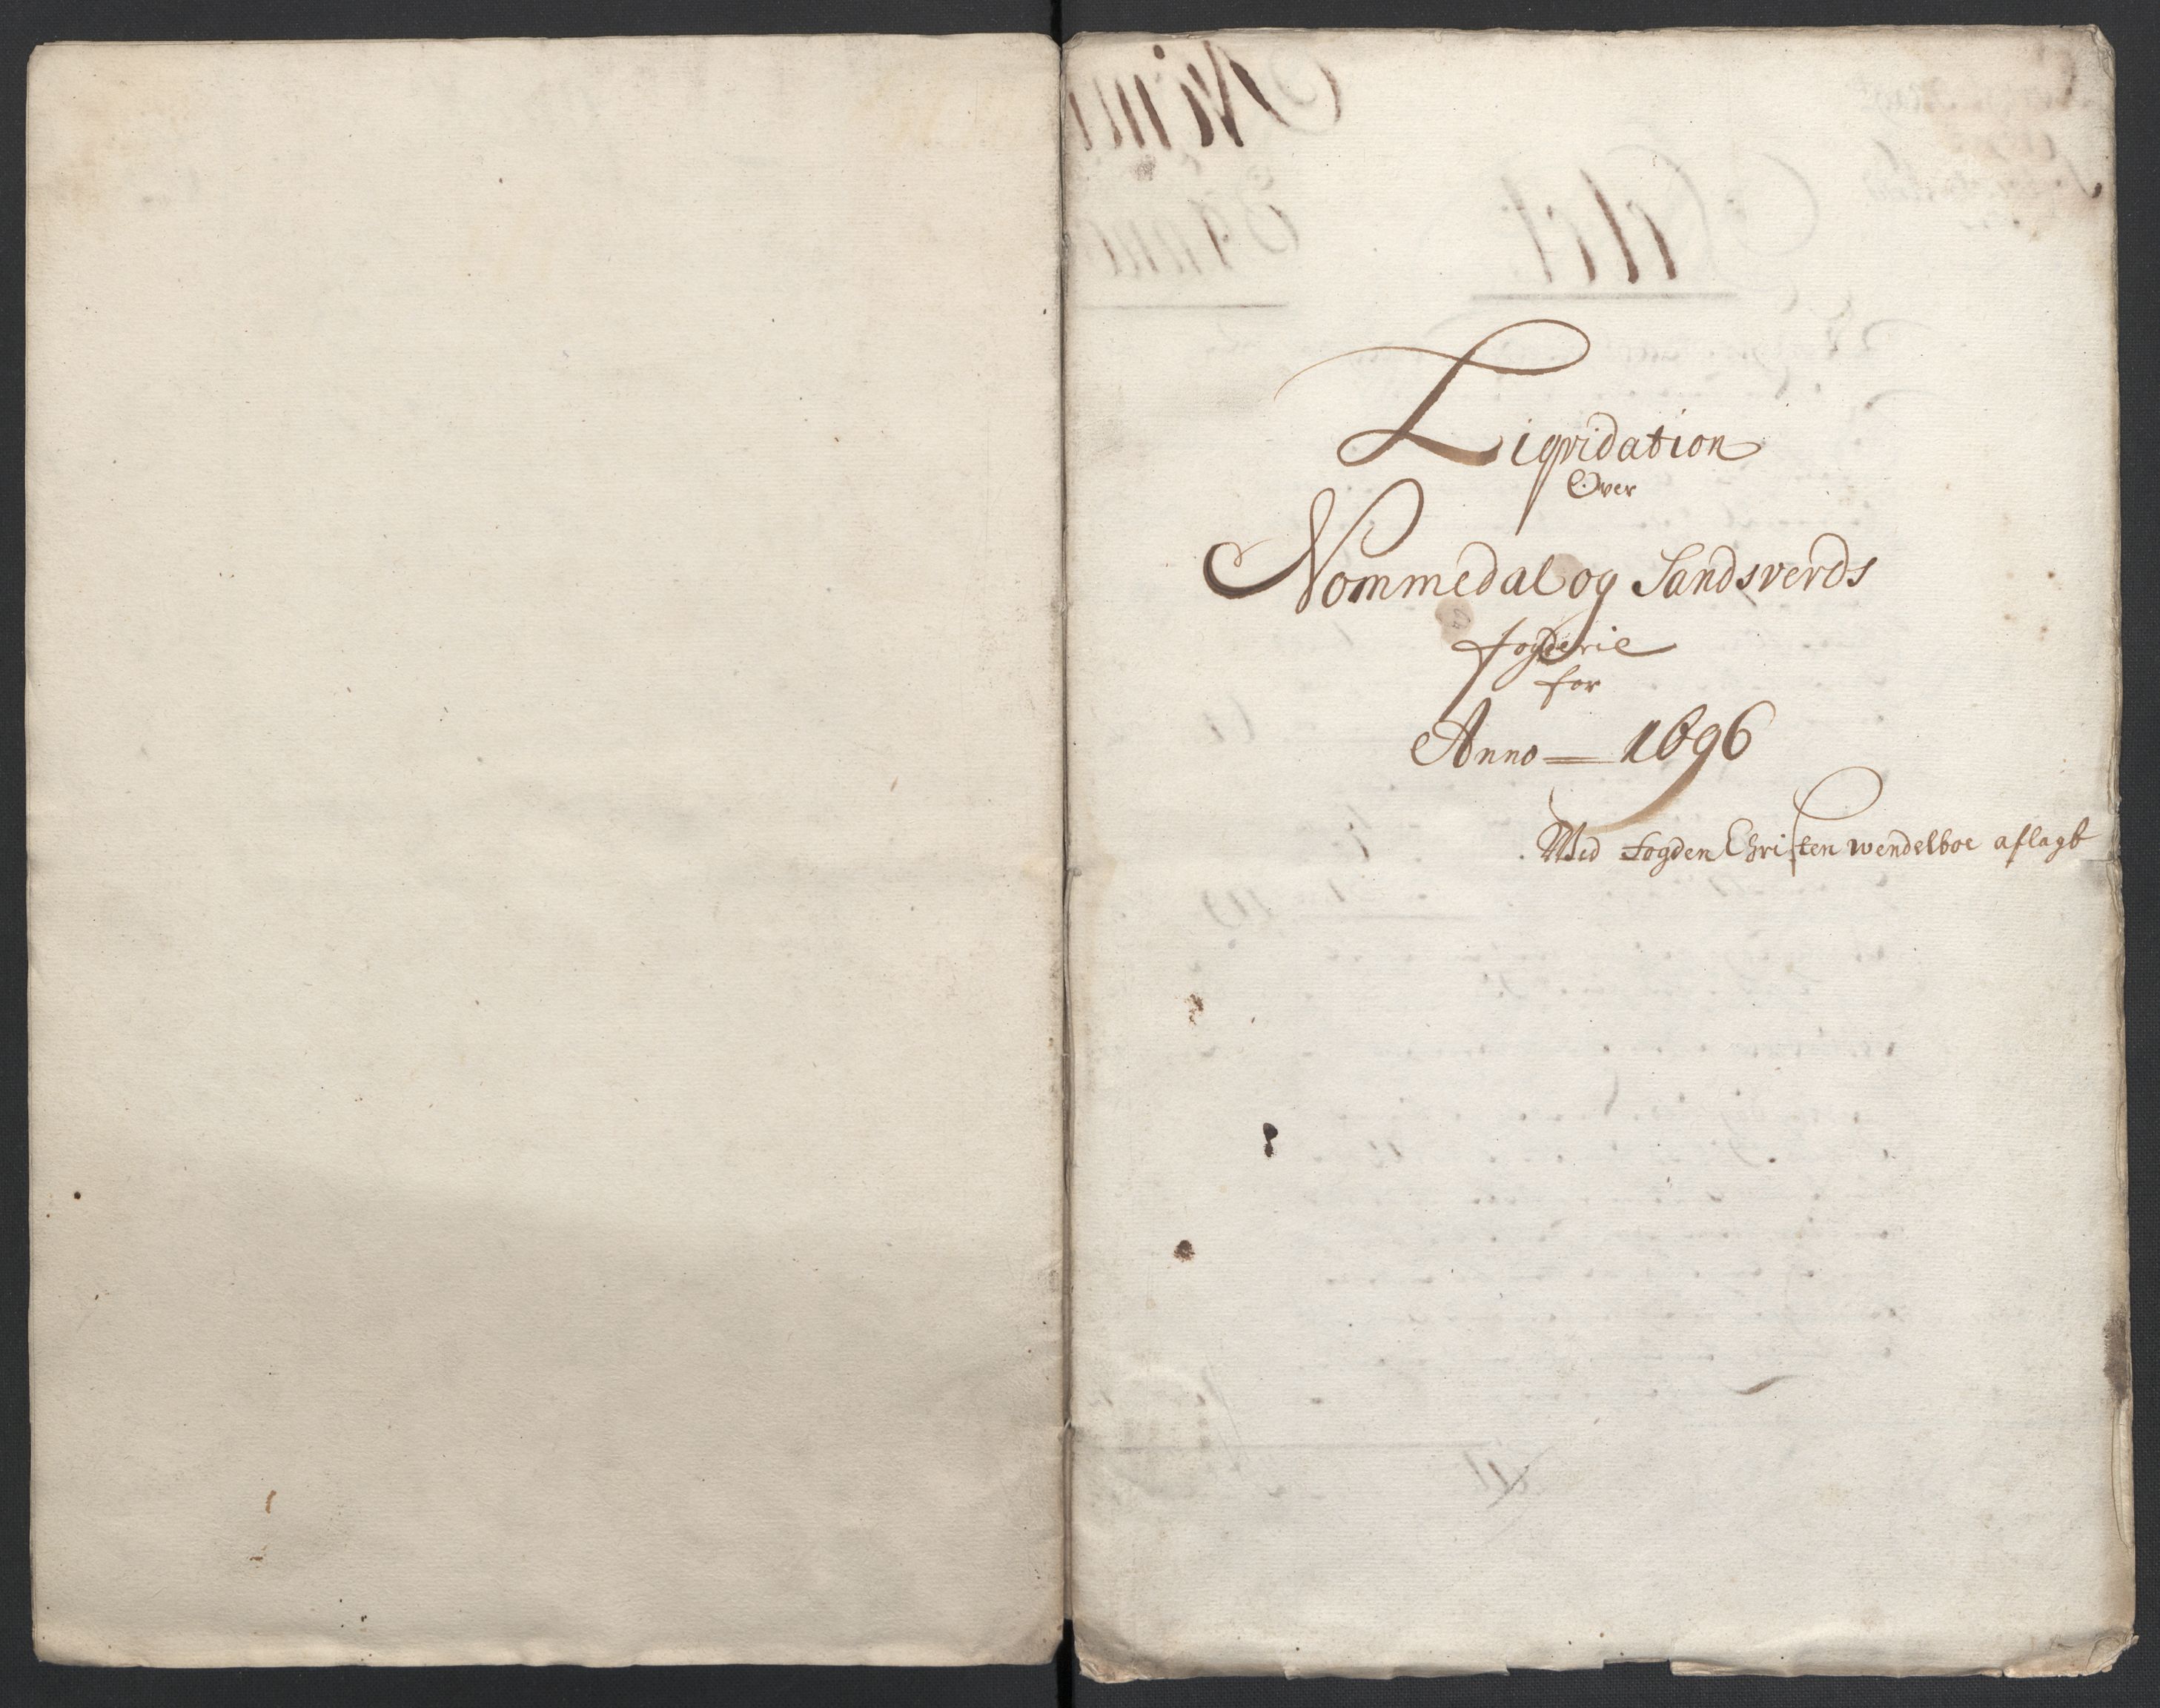 Liqvidation
Over
Nommedal og Sandsverds
fogderie
for
Anno 1696
Med Fogden Christen Wendelboe aflagt